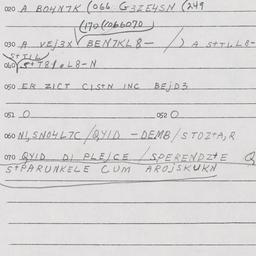 020 A BO4N7K (066 G3ZE4SN (249
(170 (066070)
030 A VEJ3X BEN7KL8- / ) A S+TI.L8-
S+TIL
040 (S+T8/.L8-N
050 ER ZICT CIS+N INC BEJD3
051 O 052 O
060 NI,SNO4L7C /QYID -DEMB/STOZ+A,R
070 QYID DI PLEJCE /SPERENDZ+E Q
S+PARUNKELE CUM AROJSKUKN